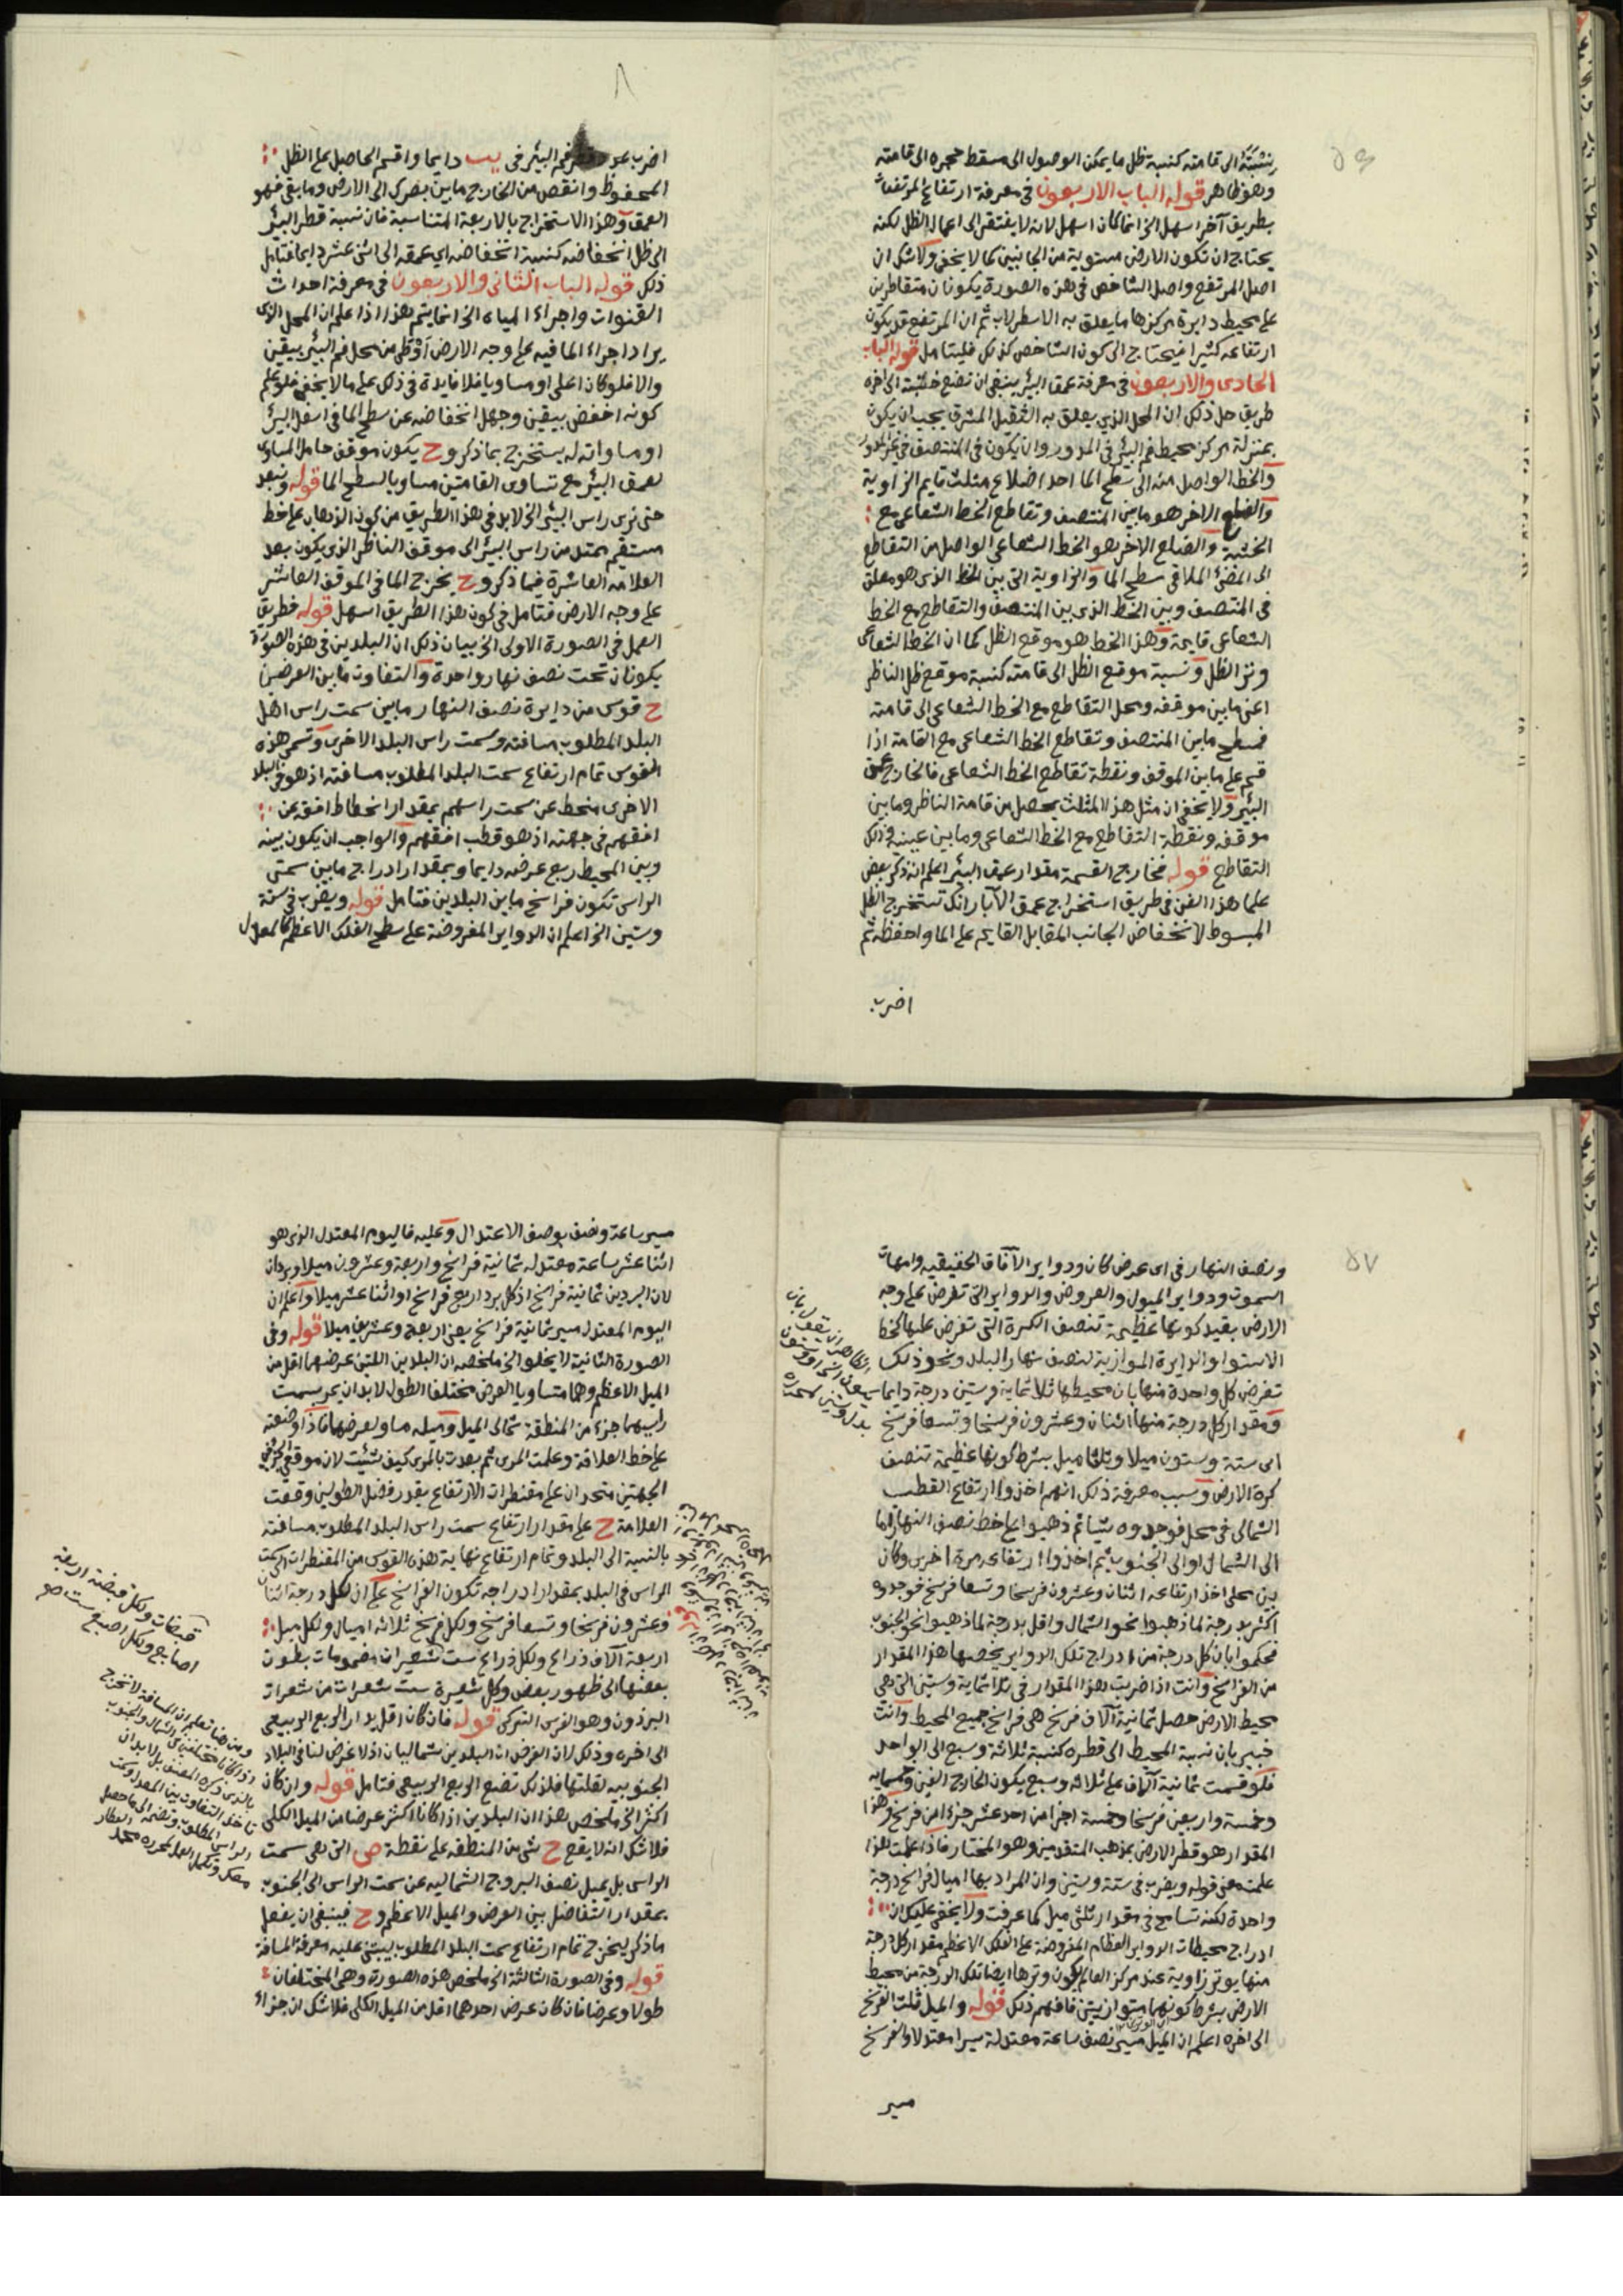 ٥٦
بنسبته الى قامته كنسبة ظل ما يمكن الوصول الى مسقط حجره الى قامته
وهو ظاهر قوله الباب الاربعون في معرفة ارتفاع المرتفعات
بطريق آخر اسهل الخ انما كان اسهل لانه لا يفتقر الى اعمال الظل لكنه
يحتاج ان تكون الارض مستوية من الجانبين كما لا يخفى ولا شك ان
اصل المرتفع واصل الشاخص في هذه الصورة يكونان متقاطرين
على محيط دايرة مركزها ما يعلق به الاسطرلاب ثم ان المرتفع قد يكون
ارتفاعه كثيرا فيحتاج الى كون الشاخص كذلك فليتامل قوله الباب
الحادى والاربعون في معرفة عمق البئر ينبغى ان تضع خشبة الى اخره
طريق حل ذلك ان المحل الذي يعلق به الثقيل المشرق يجب ان يكون
بمنزلة مركز محيط فم البئر في المدور وان يكون في المنتصف في غير المدور
والخط الواصل منه الى سطح الما احد اضلاع مثلث قايم الزاوية
والضلع الاخر هو ما بين المنتصف وتقاطع الخط الشعاعى مع
الخشبة والضلع الاخر هو الخط الشعاعى الواصل من التقاطع
الى المضئ الملاقى سطح الما والزاوية التى بين الخط الذى هو معلق
في المنتصف وبين الخط الذى بين المنتصف والتقاطع مع الخط
الشعاعى قايمة وهذا الخط هو موقع الظل كما ان الخط الشعاعى
وتر الظل ونسبة موقع الظل الى قامته كنسبة موقع ظل الناظر
اعنى ما بين موقفه ومحل التقاطع مع الخط الشعاعى الى قامته
فسطح ما بين المنتصف وتقاطع الخط الشعاعى مع القامة اذا
قسم على ما بين الموقف ونقطة تقاطع الخط الشعاعى فالخارج عمق
البئر ولا يخفى ان مثل هذا المثلث يحصل من قامة الناظر وما بين
موقفه ونقطة التقاطع مع الخط الشعاعى وما بين عينيه وذلك
التقاطع قوله فخارج القسمة مقدار عمق البئر اعلم انه ذكر بعض
علما هذا الفن في طريق استخراج عمق الآبار انك تستخرج الظل
المبسوط لانخفاض الجانب المقابل القايم على الما واحفظه ثم
اضرب
اضرب فم البئر في يب دايما واقسم الحاصل على الظل
المحفوظ وانقص من الخارج ما بين بصرك الى الارض وما بقى فهو
العمق وهذا الاستخراج بالاربعة المتناسبة فان نسبة قطر البئر
الى ظل انخفاضه كنسبة انخفاضه اي عمقه الى اثنى عشر دايما فتامل
ذلك قوله الباب الثانى والاربعون في معرفة احداث
القنوات واجراء المياه الخ انما يتم هذا اذا علم ان المحل الذى
يراد اجراء الما فيه على وجه الارض اوطى من محل فم البئر بيقين
والا فلو كان اعلى او مساويا فلا فايدة في ذلك على ما لا يخفى فلو علم
كونه اخفض بيقين وجهل انخفاضه عن سطح الما في اسفل البئر
او مساواته له يستخرج بما ذكر وح يكون موقف حامل المساوى
لعمق البئر مع تساوى القامتين مساويا لسطح الما قوله وتبعد
حتى ترى راس البئر الخ لا بد في هذا الطريق من كون الذهاب على خط
مستقيم ممتد من راس البئر الى موقف الناظر الذى يكون بعد
العلامة العاشرة فيما ذكر وح يخرج الما في الموقف العاشر
على وجه الارض فتامل في كون هذا الطريق اسهل قوله فطريق
العمل في الصورة الاولى الخ بيان ذلك ان البلدين في هذه الصورة
يكونان تحت نصف نهار واحدة والتفاوت ما بين العرضين
ح قوس من دايرة نصف النهار ما بين سمت راس اهل
البلد المطلوب مسافته وسمت راس البلد الاخرى وتسمى هذه
القوس تمام ارتفاع سمت البلد المطلوب مسافته اذ هو في البلد
الاخرى منحط عن سمت راسهم بمقدار انحطاط افقه عن
افقهم في جهته اذ هو قطب افقهم والواجب ان يكون بينه
وبين المحيط ربع عرضه دايما وبمقدار ادراج ما بين سمتى
الراس تكون فراسخ ما بين البلدين فتامل قوله ويضرب في ستة
وستين الخ اعلم ان الدواير المفروضة على سطح الفلك الاعظم كالمعدل
٥٧
ونصف النهار في اى عرض كان ودواير الآفاق الحقيقيه وامهات
السموت ودواير الميول والعروض والدواير التى تفرض على وجه
الارض بقيد كونها عظيمة تنصف الكرة التى تفرض عليها كخط
الاستوا والدايرة الموازية لنصف نهار البلد ونحو ذلك
تفرض كل واحدة منها بان محيطها ثلاثماية وستين درجة دايما
ومقدار كل درجة منها اثنان وعشرون فرسخا وتسعا فرسخ
اى ستة وستون ميلا وثلثا ميل بشرط كونها عظيمة تنصف
كرة الارض وسبب معرفة ذلك انهم اخذوا ارتفاع القطب
الشمالى في محل فوجدوه شيئا ثم ذهبوا على خط نصف النهار اما
الى الشمال او الى الجنوب ثم اخذوا ارتفاعه مرة اخرى وكان
بين محلى اخذ ارتفاعه اثنان وعشرون فرسخا وتسعا فرسخ فوجدوه
اكثر بدرجة لما ذهبوا نحو الشمال واقل بدرجة لما ذهبوا نحو الجنوب
فحكموا بان كل درجة من ادراج تلك الدواير يخصها هذا المقدار
من الفراسخ وانت اذا ضربت هذا المقدار في ثلاثماية وستين التى هى
محيط الارض حصل ثمانية آلاف فرسخ هى فراسخ جميع المحيط وانت
خبير بان نسبة المحيط الى قطره كنسبة ثلاثة وسبع الى الواحد
فلو قسمت ثمانية آلاف على ثلاثه وسبع يكون الخارج الفين وخمسمايه
وخمسة واربعين فرسخا وخمسة اجزا من احد عشر جزءا من فرسخ وهذا
المقدار هو قطر الارض بمذهب المتقدمين وهو المختار فاذا علمت هذا
علمت معنى قوله ويضرب في ستة وستين وان المراد بها اميال فراسخ درجة
واحدة لكنه تسامح في مقدار ثلثى ميل كما عرفت ولا يخفى عليك ان
ادراج محيطات الدواير العظام المفروضة على الفلك الاعظم مقدار كل درجة
منها يوتر زاوية عند مركز العالم يكون وترها ايضا تلك الدرجة من محيط
الارض بشرط كونهما متوازيتين فافهم ذلك قوله والميل ثلث الفرسخ
الى اخره اعلم ان الميل مسير نصف ساعة معتدلة سيرا معتدلا والفرسخ
مسير
مسير ساعة ونصف بوصف الاعتدال وعليه فاليوم المعتدل الذى هو
اثنا عشر ساعة معتدله ثمانية فراسخ واربعة وعشرون ميلا وبردان
لان البردين ثمانية فراسخ اذ كل برد اربع فراسخ او اثنا عشر ميلا واعلم ان
اليوم المعتدل مسير ثمانية فراسخ يعنى اربعة وعشرين ميلا قوله وفى
الصورة الثانية لا يخلو الخ ملخصه ان البلدين اللتين عرضهما اقل من
الميل الاعظم وهما متساويا العرض مختلفا الطول لا بد ان يمر بسمت
راسيهما جزء من المنطقة شمالى الميل وميله مساو لعرضهما فاذا وضعته
على خط العلاقة وعلمت المرى ثم بعدت بالمرى كيف شئيت لان موقع الجزء في
الجهتين متحدان على مقنطرات الارتفاع بقدر فضل الطولين وقفت
العلامة ح على مقدار ارتفاع سمت راس البلد المطلوب مسافته
بالنسبة الى البلد وتمام ارتفاع نهاية هذه القوس من المقنطرات الى سمت
الراس في البلد بمقدار ادراجه تكون الفراسخ على ان لكل درجة اثنان
وعشرون فرسخا وتسعا فرسخ ولكل فرسخ ثلاثه اميال ولكل ميل
اربعة آلاف ذراع ولكل ذراع ست شعيرات مضمومات بطون
بعضها الى ظهور بعض وكل شعيرة ست شعرات من شعرات
البرذون وهو الفرس التركى قوله فان كان اقل يدار الربع الربيعى
الى اخره وذلك لان الغرض ان البلدين شماليان اذ لا غرض لنا في البلاد
الجنوبيه لقلتها فلذلك تضع الربع الربيعى فتامل قوله وان كان
اكثر الخ ملخص هذا ان البلدين اذا كانا اكثر عرضا من الميل الكلى
فلا شك انه لا يقع ح شى من المنطقه على نقطة ص التى هى سمت
الراس بل يميل نصف البروج الشماليه عن سمت الراس الى الجنوب
بمقدار التفاضل بين العرض والميل الاعظم وح فينبغى ان يفعل
ما ذكر ليخرج تمام ارتفاع سمت البلد المطلوب ليبتنى عليه معرفة المسافة
قوله وفى الصورة الثالثة الخ ملخص هذه الصورة وهى المختلفان
طولا وعرضا فان كان عرض احدهما اقل من الميل الكلى فلا شك ان جزاء
قبضات ولكل قبضة اربعة
اصابع ولكل اصبع ست
ومن هنا تعلم ان المسافة لا تخرج
اذا كانا مختلفين في الشمال والجنوب
بالذى ذكره المصنف بل لا بد ان
تاخذ التفاوت بين المعدل وسمت
الراس المطلوب وتضمه الى ما حصل
معك وتكمل العمل لمحرره محمد العطار